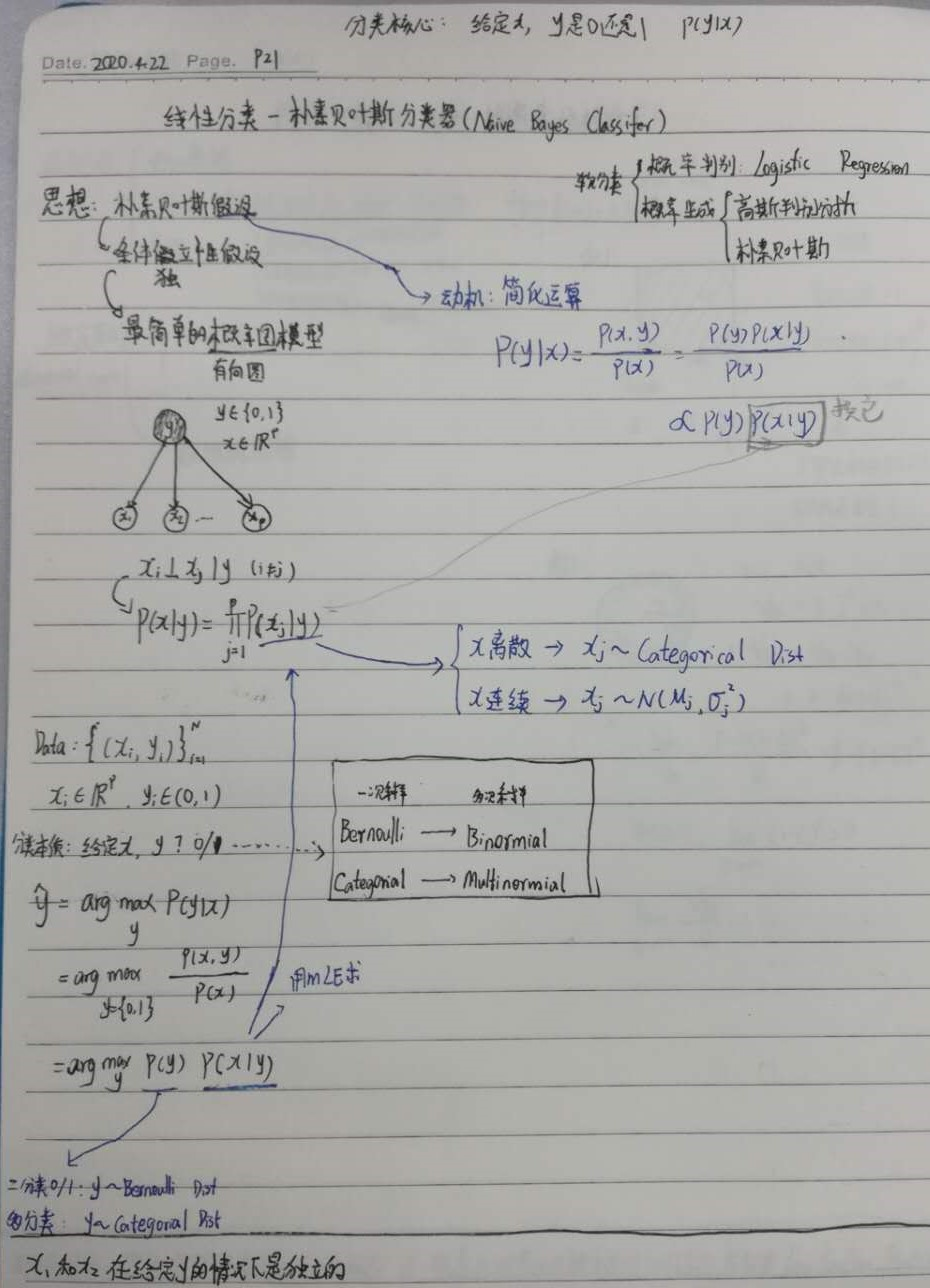 分类核心: 给定x, y是0还是1 P(y|x)
Date. 2020.4.22 Page. P21
线性分类-朴素贝叶斯分类器(Naive Bayes Classifer)
软分类 概率判别: Logistic Regression
概率生成 高斯判别分析
朴素贝叶斯
思想: 朴素贝叶斯假设
条件独立性假设
独
动机: 简化运算
最简单的概率图模型
有向图
P(y|x) = P(x,y)/P(x) = P(y)P(x|y)/P(x)
∝ P(y) P(x|y) 找它
y y∈{0,1}
x∈ℝᵖ
x₁ x₂ … xₚ
xᵢ⊥xⱼ|y (i≠j)
P(x|y) = ∏ⱼ₌₁ᵖ P(xⱼ|y)
x离散 → xⱼ ~ Categorical Dist
x连续 → xⱼ ~ N(μⱼ, σⱼ²)
Data: {(xᵢ, yᵢ)}ᵢ₌₁ᴺ
xᵢ∈ℝᵖ, yᵢ∈(0,1)
一次采样 多次采样
Bernoulli → Binormial
Categorial → Multinormial
给定x, y? 0/1
ŷ = arg max y P(y|x)
= arg max y={0,1} P(x,y)/P(x)
用MLE求
= arg max y P(y) P(x|y)
二分类0/1: y~Bernoulli Dist
多分类: y~Categorial Dist
x₁和x₂在给定y的情况下是独立的